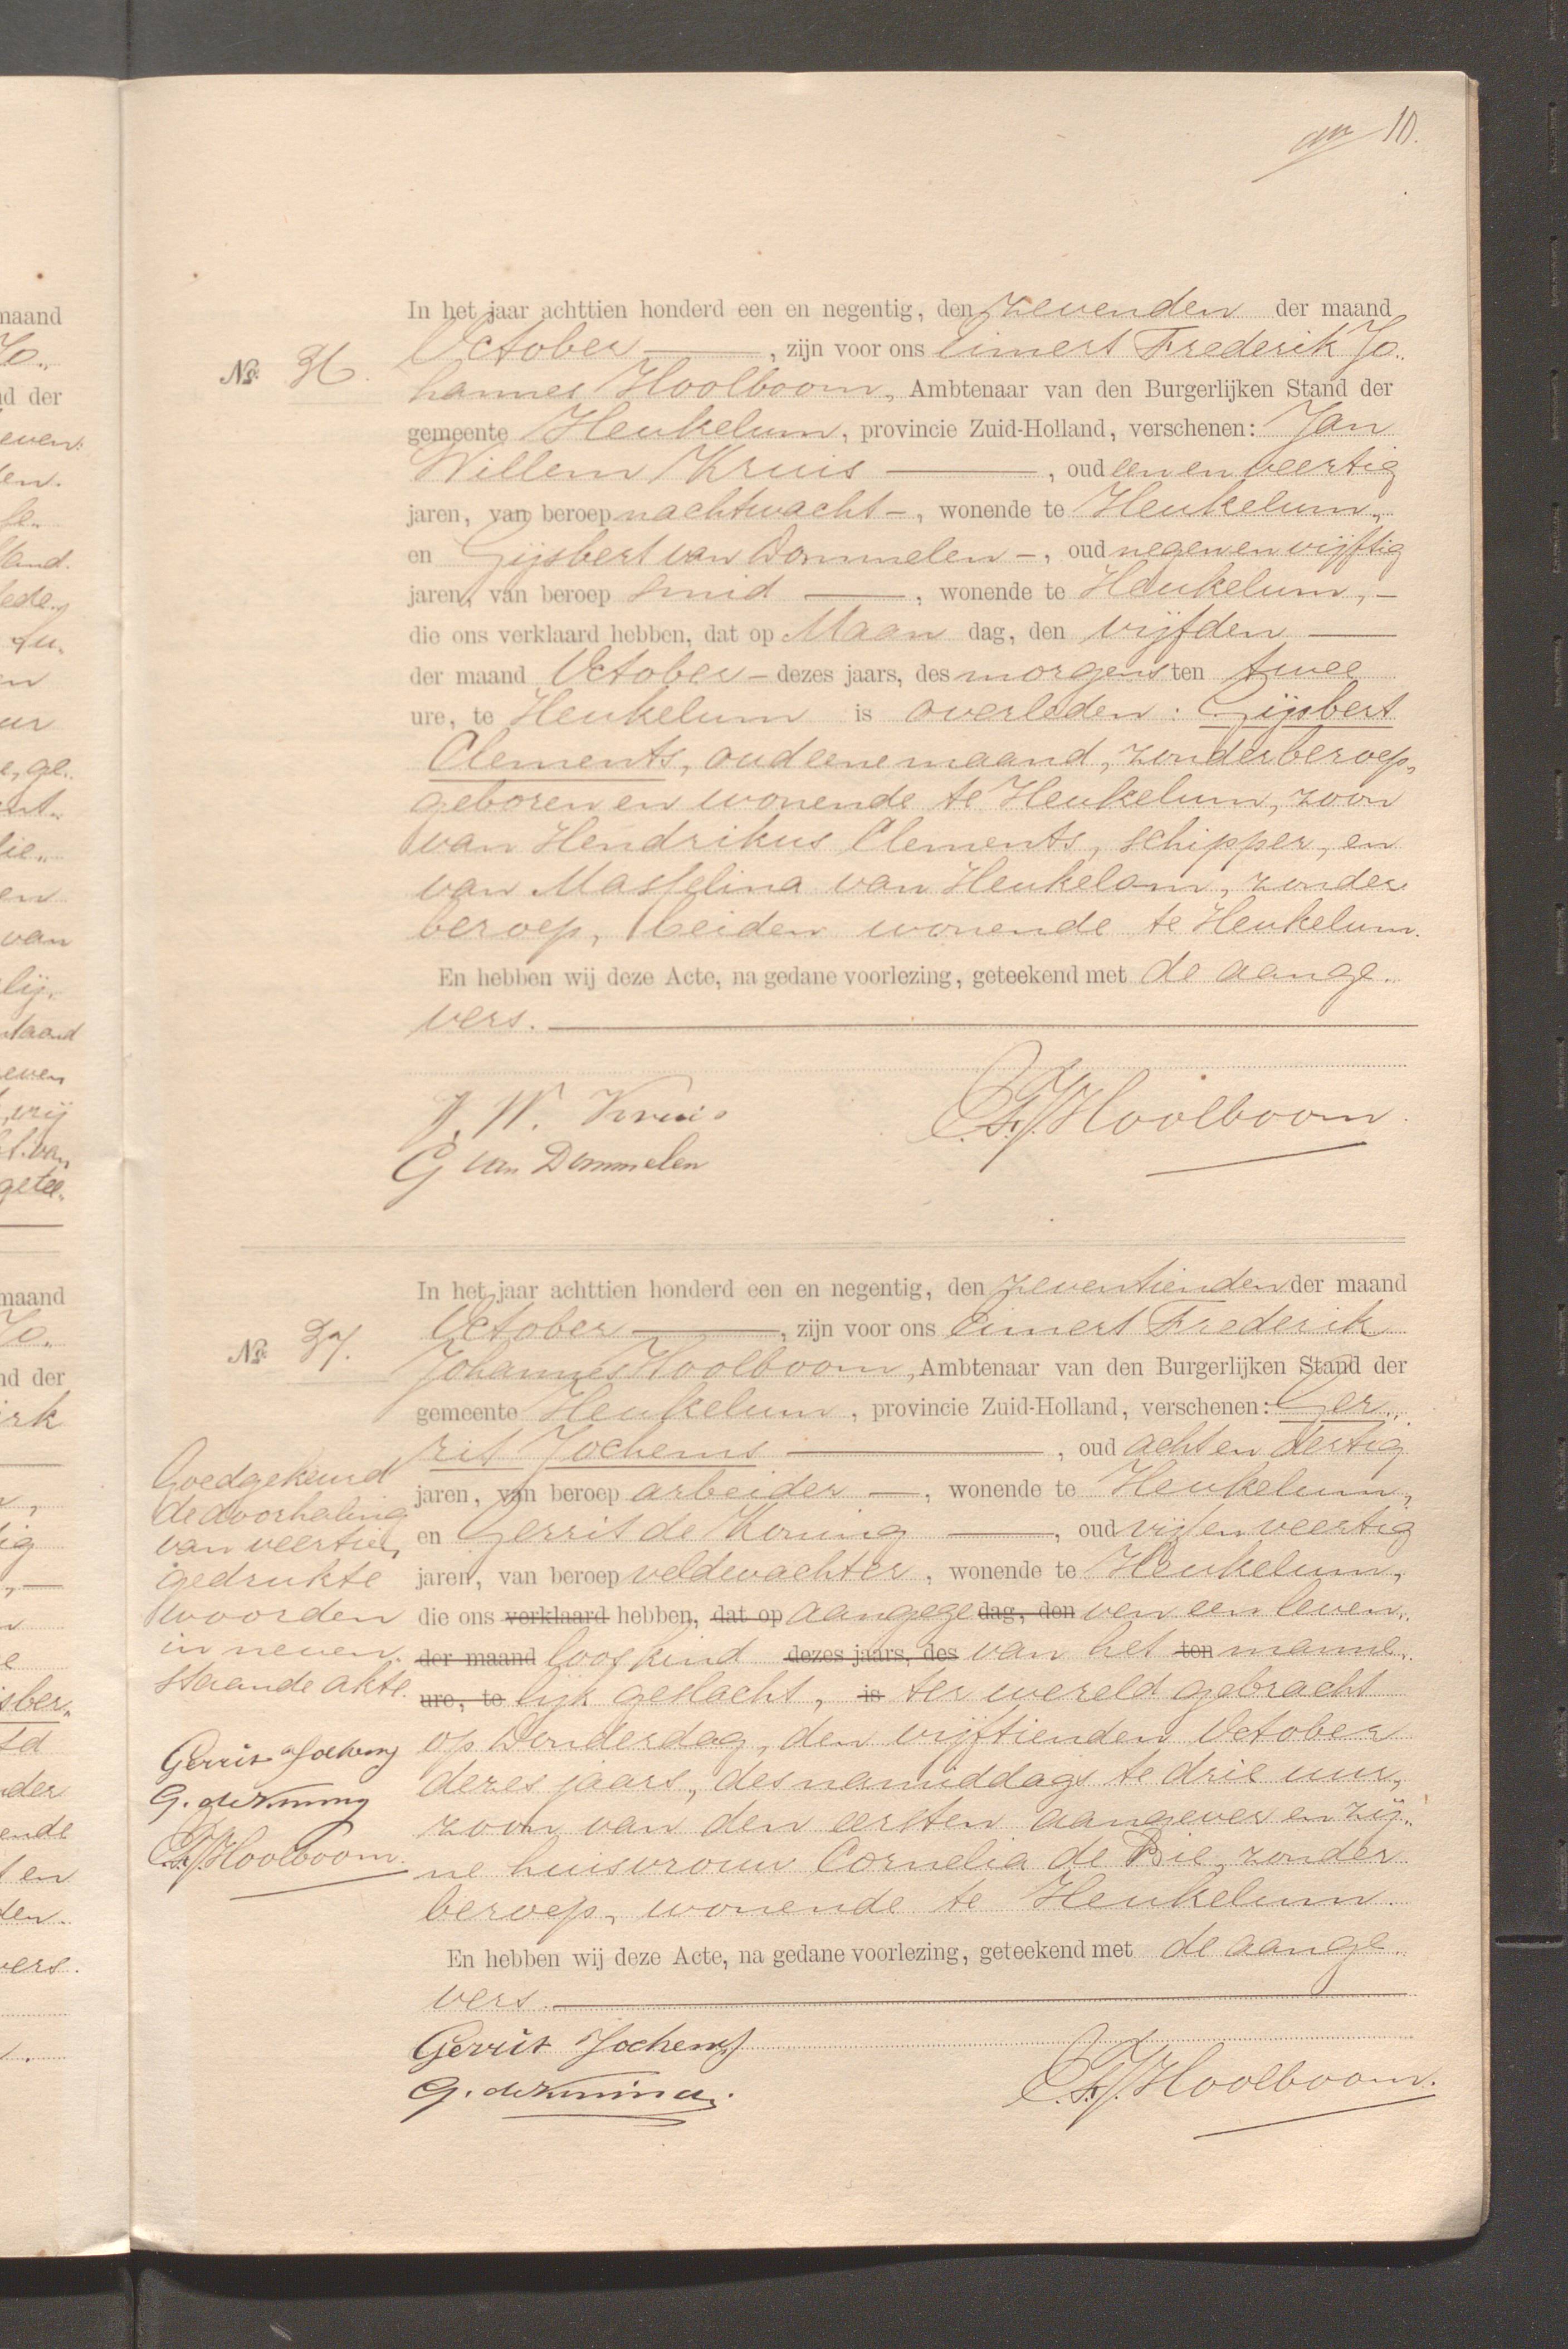 10.
In het jaar achttien honderd een en negentig, den zevenden der maand
No. 36. October —, zijn voor ons Eimert Frederik Jo„
hannes Hoolboom, Ambtenaar van den Burgerlijken Stand der
gemeente Heukelum, provincie Zuid-Holland, verschenen: Jan
Willem Kruis —, oud een en veertig
jaren, van beroep nachtwacht —, wonende te Heukelum,
en Gijsbert van Dommelen —, oud negen en vijftig
jaren, van beroep smid —, wonende te Heukelum, —
die ons verklaard hebben, dat op Maan dag, den vijfden —
der maand October — dezes jaars, des morgens ten twee
ure, te Heukelum is overleden: Gijsbert
Clements, oud eene maand, zonder beroep,
geboren en wonende te Heukelum, zoon
van Hendrikus Clements, schipper, en
van Masselina van Heukelom, zonder
beroep, beiden wonende te Heukelum.
En hebben wij deze Acte, na gedane voorlezing, geteekend met de aange„
vers. —
J. W. Kruis
E.F.J. Hoolboom.
G van Dommelen
In het jaar achttien honderd een en negentig, den zeventienden der maand
No. 37. October —, zijn voor ons Eimert Frederik
Johannes Hoolboom, Ambtenaar van den Burgerlijken Stand der
gemeente Heukelum, provincie Zuid-Holland, verschenen: Ger„
rit Jochems —, oud acht en dertig
jaren, van beroep arbeider —, wonende te Heukelum,
en Gerrit de Koning —, oud vijf en veertig
jaren, van beroep veldwachter, wonende te Heukelum,
die ons verklaard hebben, dat op aangege dag, den ven een leven„
der maand loos kind dezes jaars, des van het ten manne„
ure, te lijk geslacht, is ter wereld gebracht
op Donderdag, den vijftienden October
dezes jaars, des namiddags te drie uur,
zoon van den eersten aangever en zij„
ne huisvrouw Cornelia de Bie, zonder
beroep, wonende te Heukelum.
En hebben wij deze Acte, na gedane voorlezing, geteekend met de aange„
vers. —
Gerrit Jochems
G. de Koning.
E.F.J. Hoolboom.
Goedgekeurd
de doorhaling
van veertien
gedrukte
woorden
in neven„
staande akte.
Gerrit Jochems
G. de Koning
E.F.J. Hoolboom.